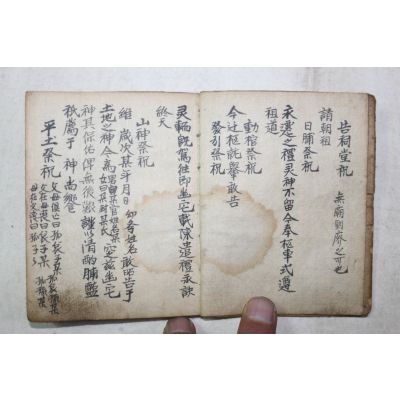 告祠堂祝 無廟則廢之可也
請朝祖
日晡祭祝
永遷之禮灵神不留今奉柩車式遵
祖道
動棺祭祝
今迁柩就轝敢告
發引祭祝
灵輀旣駕往即幽宅載陳遣禮永訣
終天
山神祭祝
維 歲次某年月日 幼学姓名敢昭告于
土地之神今爲 某官姓名 窆玆幽宅
神其保佑俾無後艱謹以清酌脯醢
秪薦于 神尚饗
平土祭祝